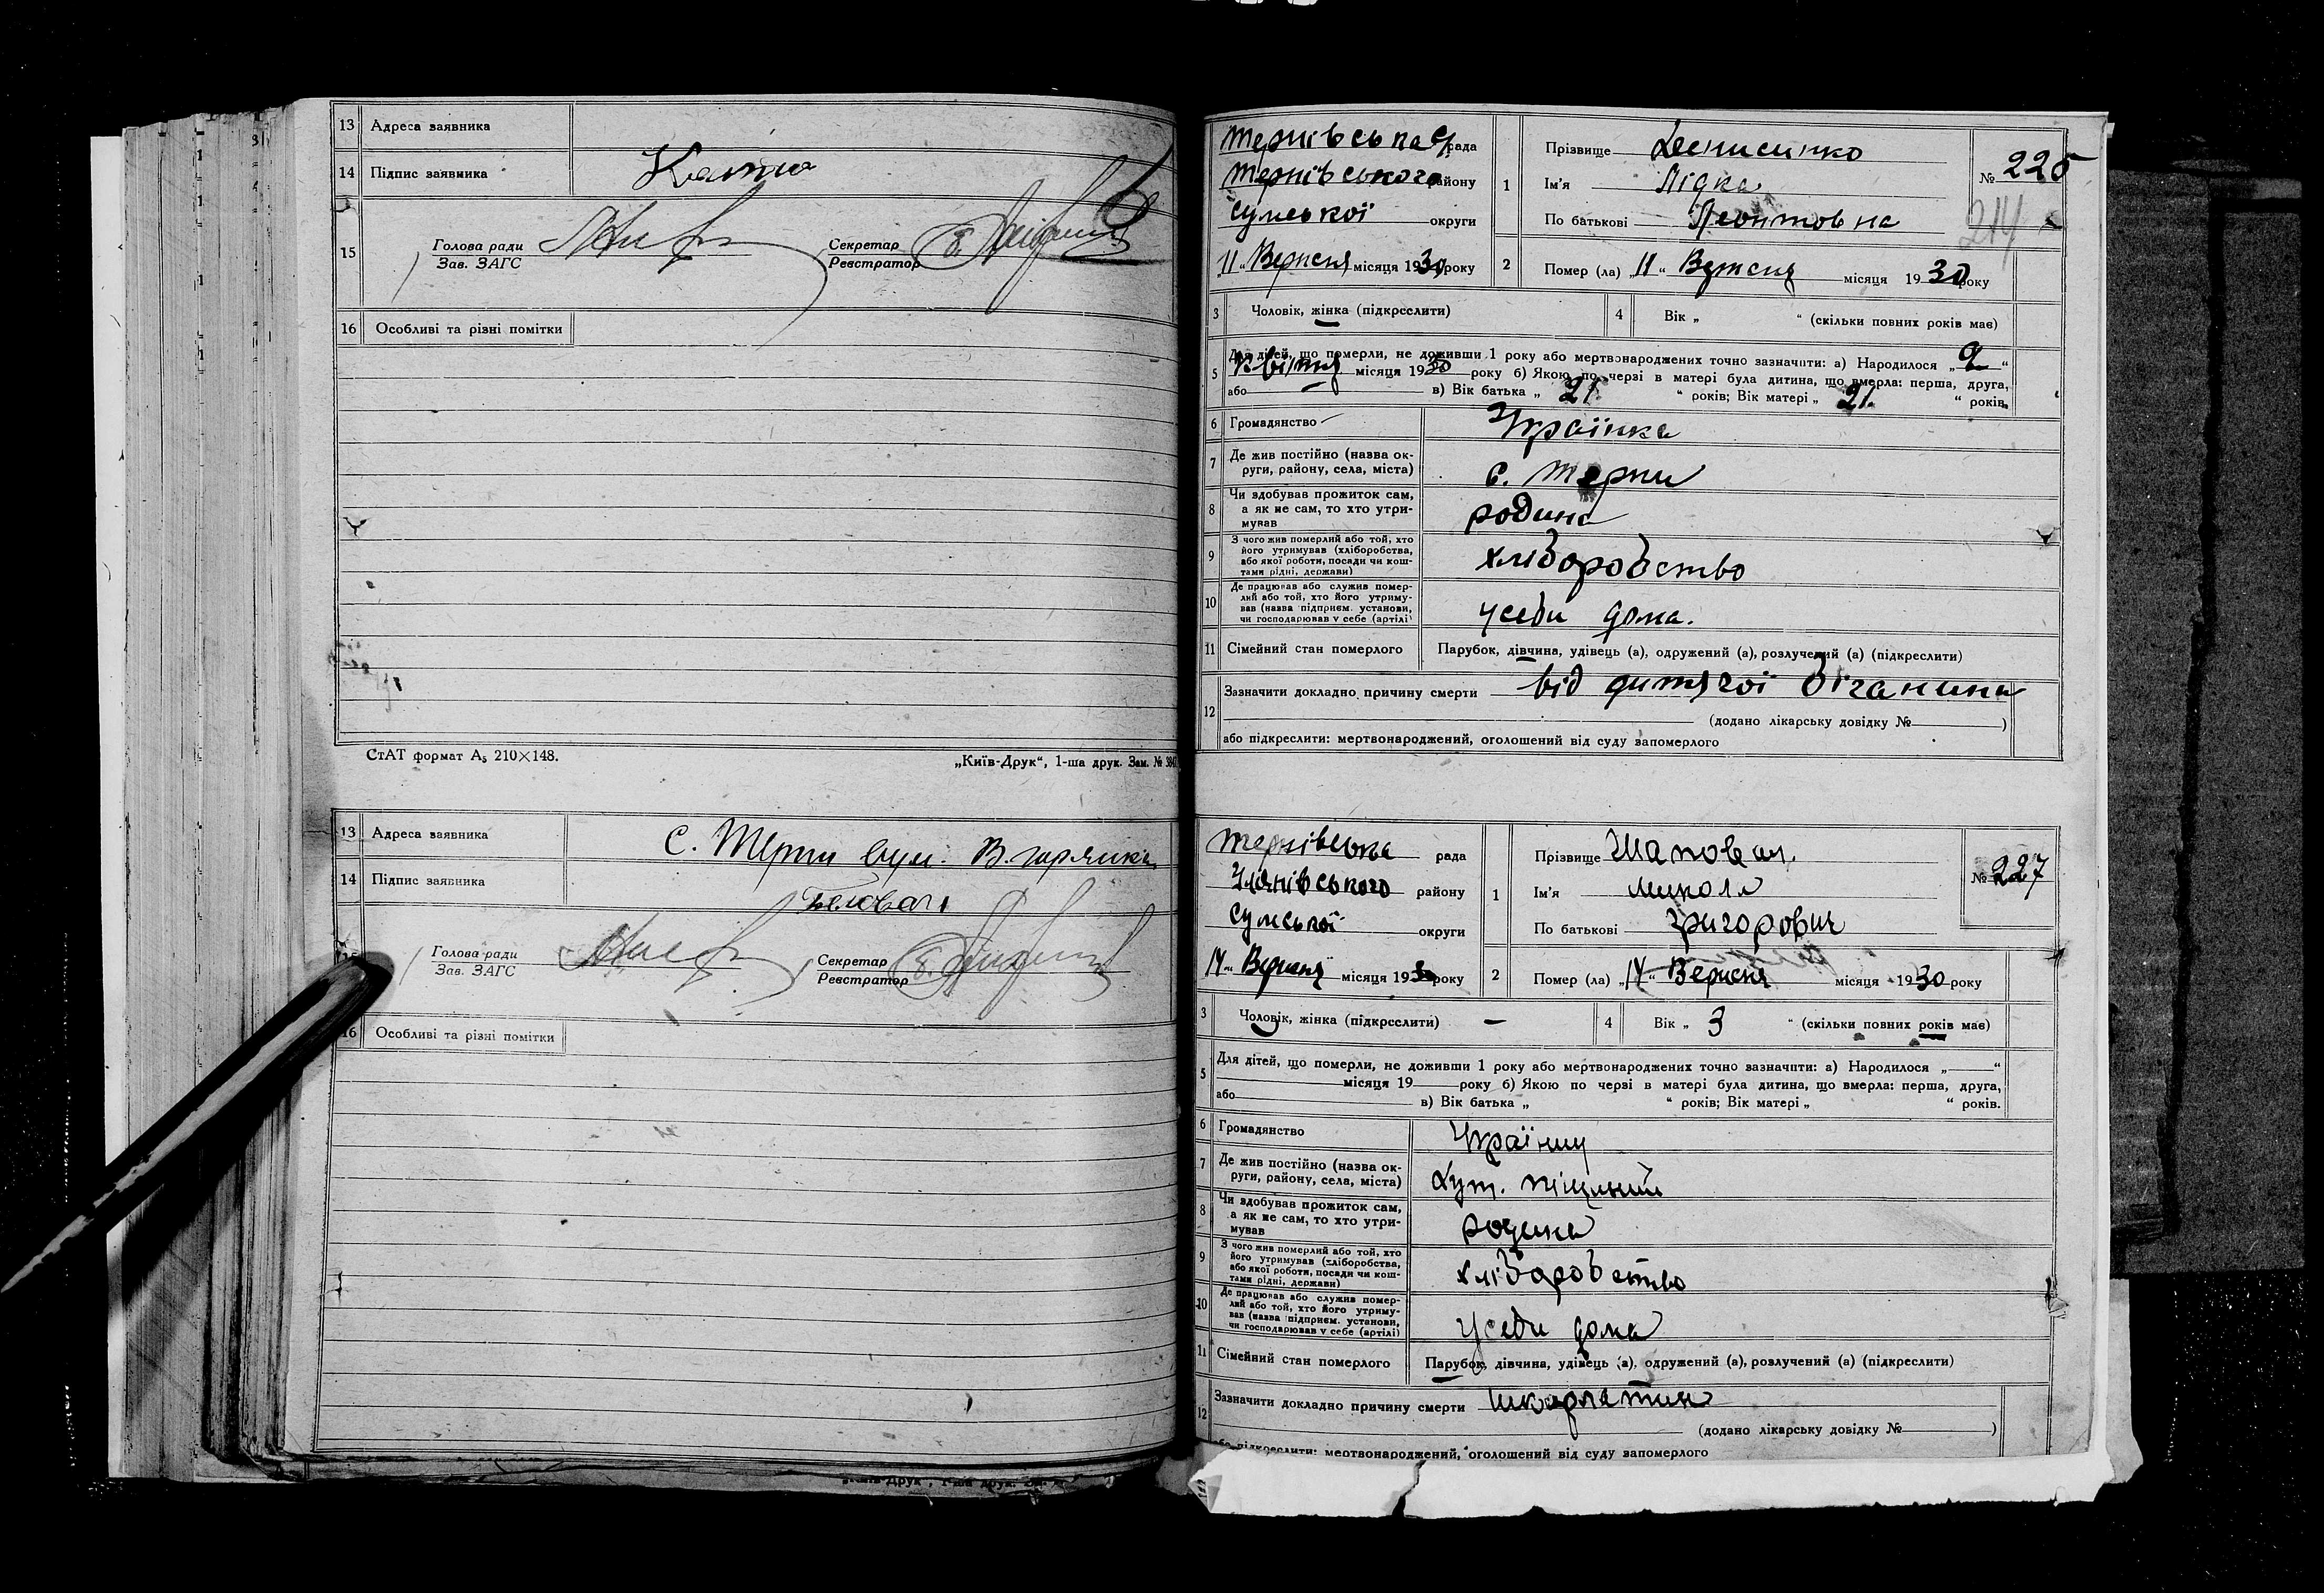 13 Адреса заявника
14 Підпис заявника
15 Голова ради
Зав. ЗАГС
Секретар
Реєстратор
16 Особливі та різні помітки
СтАТ формат А5 210×148.
„Київ-Друк“, 1-ша друк. Зам. №
13 Адреса заявника С. Терни вул.
14 Підпис заявника
Голова ради
Зав. ЗАГС
Секретар
Реєстратор
16 Особливі та різні помітки
Тернівська рада
Тернівського району
Сумської округи
11 „ Вересня місяця 1930 року
1 Прізвище Денисенко
Ім'я Лідка
По батькові
№ 225
214
2 Помер (ла) „ 11 “ Вересня місяця 1930 року
3 Чоловік, жінка (підкреслити)
4 Вік „ “ (скільки повних років має)
5 Для дітей, що померли, не доживши 1 року або мертвонароджених точно зазначити: а) Народилося „ 2 “
Квітня місяця 1930 року б) Якою по черзі в матері була дитина, що вмерла: перша, друга,
або в) Вік батька „ 21 “ років; Вік матері „ 21. “ років.
6 Громадянство Українка
7 Де жив постійно (назва округи, району, села, міста) с. Терни
8 Чи здобував прожиток сам, а як не сам, то хто утримував родина
9 З чого жив померлий або той, хто його утримував (хліборобства, або якої роботи, посади чи коштами рідні, держави) хліборобство
10 Де працював або служив померлий або той, хто його утримував (назва підприєм. установи, чи господарював у себе (артілі) усеби дома.
11 Сімейний стан померлого Парубок, дівчина, удівець (а), одружений (а), розлучений (а) (підкреслити)
12 Зазначити докладно причину смерти від дитячої біганина
(додано лікарську довідку № )
або підкреслити: мертвонароджений, оголошений від суду запомерлого
Тернівська рада
району
Сумської округи
14 „ Вересня місяця 1930 року
1 Прізвище Шаповал.
Ім'я Микола
По батькові Григорович
№ 227
2 Помер (ла) „ 14 “ Вересня місяця 1930 року
3 Чоловік, жінка (підкреслити) —
4 Вік „ 3 “ (скільки повних років має)
5 Для дітей, що померли, не доживши 1 року або мертвонароджених точно зазначити: а) Народилося „ “
місяця 19 року б) Якою по черзі в матері була дитина, що вмерла: перша, друга,
або в) Вік батька „ “ років; Вік матері „ “ років.
6 Громадянство Українц
7 Де жив постійно (назва округи, району, села, міста) Хут.
8 Чи здобував прожиток сам, а як не сам, то хто утримував родина
9 З чого жив померлий або той, хто його утримував (хліборобства, або якої роботи, посади чи коштами рідні, держави) хліборобство
10 Де працював або служив померлий або той, хто його утримував (назва підприєм. установи, чи господарював у себе (артілі) Усеби дома
11 Сімейний стан померлого Парубок, дівчина, удівець (а), одружений (а), розлучений (а) (підкреслити)
12 Зазначити докладно причину смерти шкарлетин
(додано лікарську довідку № )
або підкреслити: мертвонароджений, оголошений від суду запомерлого